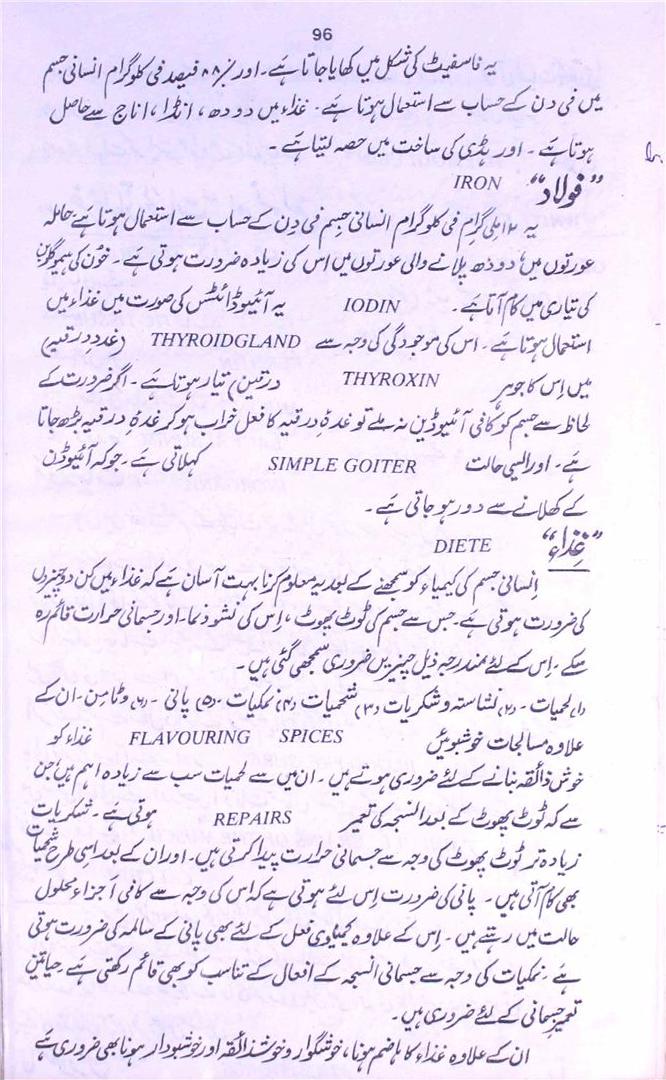 96
یہ فاسفیٹ کی شکل میں کھایا جاتا ہے۔ اور ۸۸٪ فیصد فی کلو گرام انسانی جسم
میں فی دن کے حساب سے استعمال ہوتا ہے۔ غذاء میں دودھ، انڈا، اناج سے حاصل
ہوتا ہے۔ اور ہڈی کی ساخت میں حصہ لیتا ہے۔
”فولاد“ IRON
یہ ۱۲ ملی گرام فی کلو گرام انسانی جسم فی دن کے حساب سے استعمال ہوتا ہے حاملہ
عورتوں میں، دودھ پلانے والی عورتوں میں اس کی زیادہ ضرورت ہوتی ہے۔ خون کی ہیموگلوبن
کی تیاری میں کام آتا ہے۔ IODIN یہ آئیوڈائٹس کی صورت میں غذاء میں
استعمال ہوتا ہے۔ اس کی موجودگی کی وجہ سے THYROIDGLAND (غدد درقیہ)
میں اس کا جوہر THYROXIN درقین) تیار ہوتا ہے۔ اگر ضرورت کے
لحاظ سے جسم کو کافی آئیوڈین نہ ملے تو غدۂ درقیہ کا فعل خراب ہو کر غدۂ درقیہ بڑھ جاتا
ہے۔ اور ایسی حالت SIMPLE GOITER کہلاتی ہے۔ جو کہ آئیوڈن
کے کھلانے سے دور ہو جاتی ہے۔
”غذاء“ DIETE
انسانی جسم کی کیمیاء کو سمجھنے کے بعد یہ معلوم کرنا بہت آسان ہے کہ غذاء میں کن دو چیزوں
کی ضرورت ہوتی ہے۔ جس سے جسم کی ٹوٹ پھوٹ، اس کی نشوونما۔ اور جسمانی حرارت قائم رہ
سکے۔ اس کے لئے مندرجہ ذیل چیزیں ضروری سمجھی گئی ہیں۔
(۱) لحمیات۔ (۲) نشاستہ و شکریات (۳) شحمیات (۴) نمکیات (۵) پانی۔ (۶) وٹامن۔ ان کے
علاوہ مسالجات خوشبوئیں FLAVOURING SPICES غذاء کو
خوش ذائقہ بنانے کے لئے ضروری ہوتے ہیں۔ ان میں سے لحمیات سب سے زیادہ اہم ہیں جن
سے کہ ٹوٹ پھوٹ کے بعد النسجہ کی تعمیر REPAIRS ہوتی ہے۔ شکریات
زیادہ تر ٹوٹ پھوٹ کی وجہ سے جسمانی حرارت پیدا کرتی ہیں۔ اور ان کے بعد اسی طرح شحمیات
بھی کام آتی ہیں۔ پانی کی ضرورت اس لئے ہوتی ہے کہ اس کی وجہ سے کافی اجزاء محلول
حالت میں رہتے ہیں۔ اس کے علاوہ کیمیاوی فعل کے لئے بھی پانی کے سالمہ کی ضرورت ہوتی
ہے۔ نمکیات کی وجہ سے جسمانی النسجہ کے افعال کے تناسب کو بھی قائم رکھتی ہے۔ حیاتین
تعمیر جسمانی کے لئے ضروری ہیں۔
ان کے علاوہ غذاء کا ہاضم ہونا، خوشگوار و خوش ذائقہ اور خوشبودار ہونا بھی ضروری ہے